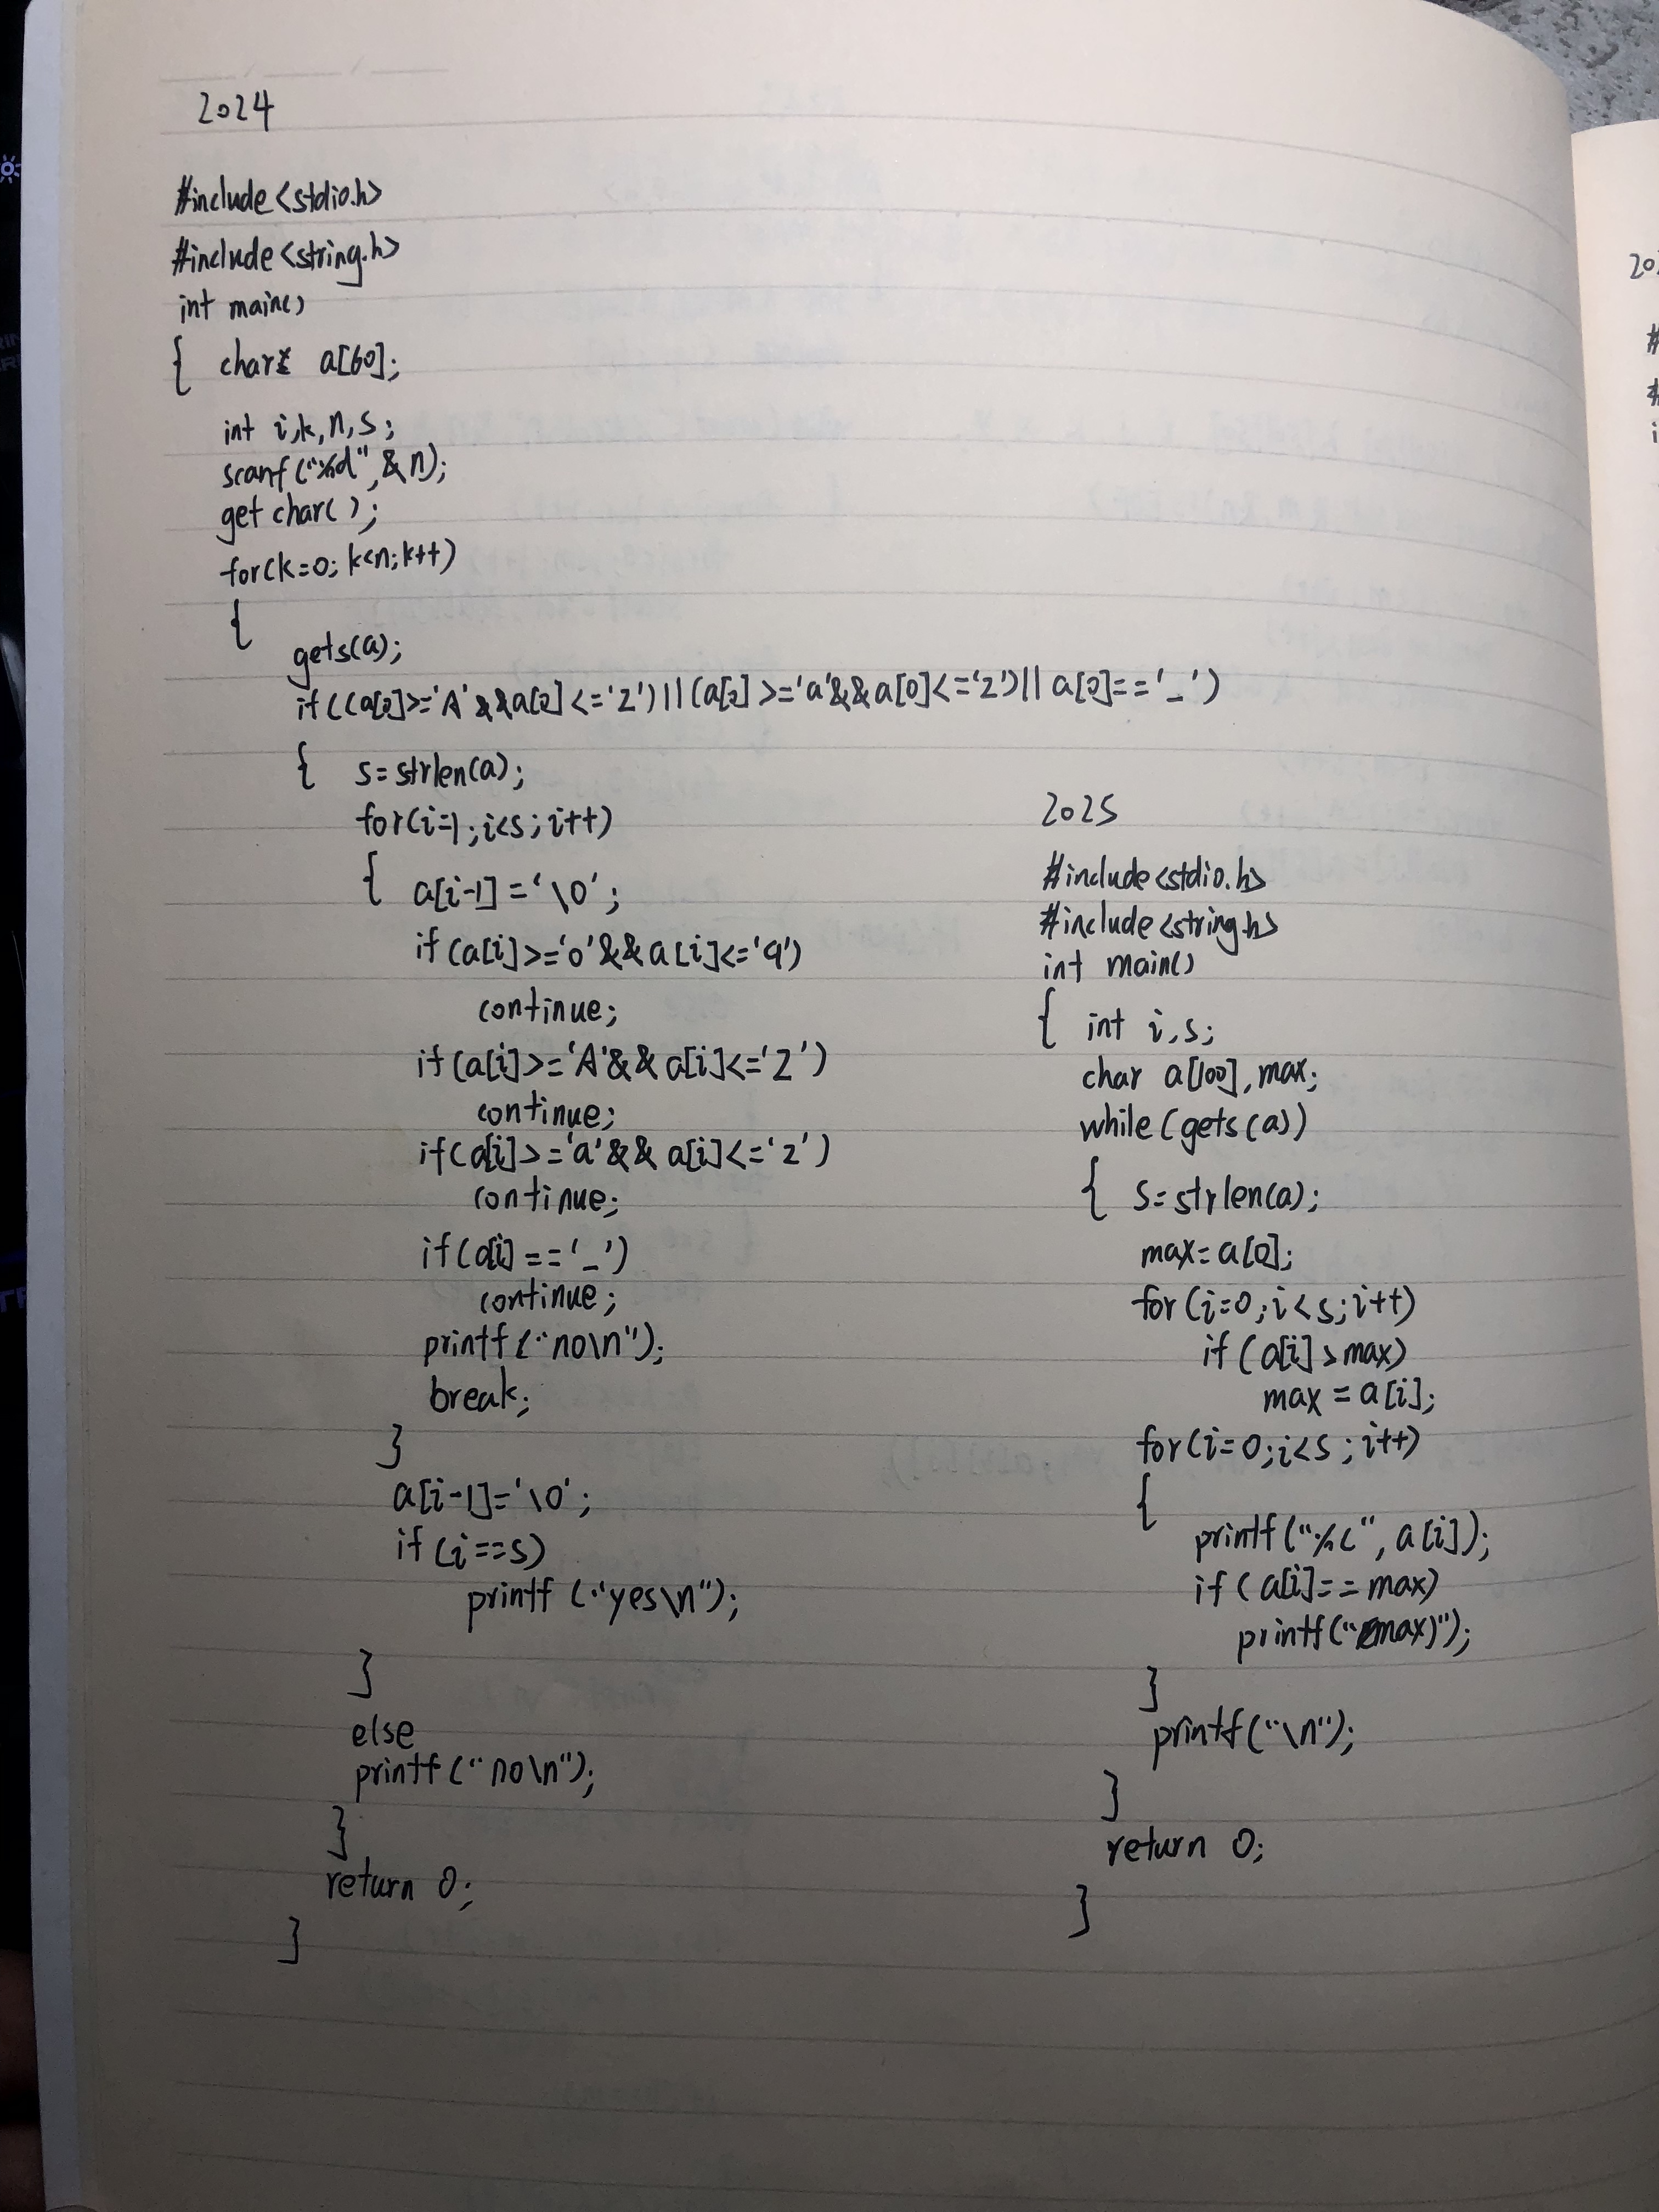 2024
#include<stdio.h>
#include<string.h>
int main()
{ char a[60];
int i,k,n,s;
scanf("%d",&n);
getchar();
for(k=0;k<n;k++)
{
gets(a);
if((a[0]>='A'&&a[0]<='Z')||(a[0]>='a'&&a[0]<='z')||a[0]=='_')
{ s=strlen(a);
for(i=1;i<s;i++)
{ a[i-1]='\0';
if(a[i]>='0'&&a[i]<='9')
continue;
if(a[i]>='A'&&a[i]<='Z')
continue;
if(a[i]>='a'&&a[i]<='z')
continue;
if(a[i]=='_')
continue;
printf("no\n");
break;
}
a[i-1]='\0';
if(i==s)
printf("yes\n");
}
else
printf("no\n");
}
return 0;
}
2025
#include<stdio.h>
#include<string.h>
int main()
{ int i,s;
char a[100],max;
while(gets(a))
{ s=strlen(a);
max=a[0];
for(i=0;i<s;i++)
if(a[i]>max)
max=a[i];
for(i=0;i<s;i++)
{
printf("%c",a[i]);
if(a[i]==max)
printf("(max)");
}
printf("\n");
}
return 0;
}
#
#
i